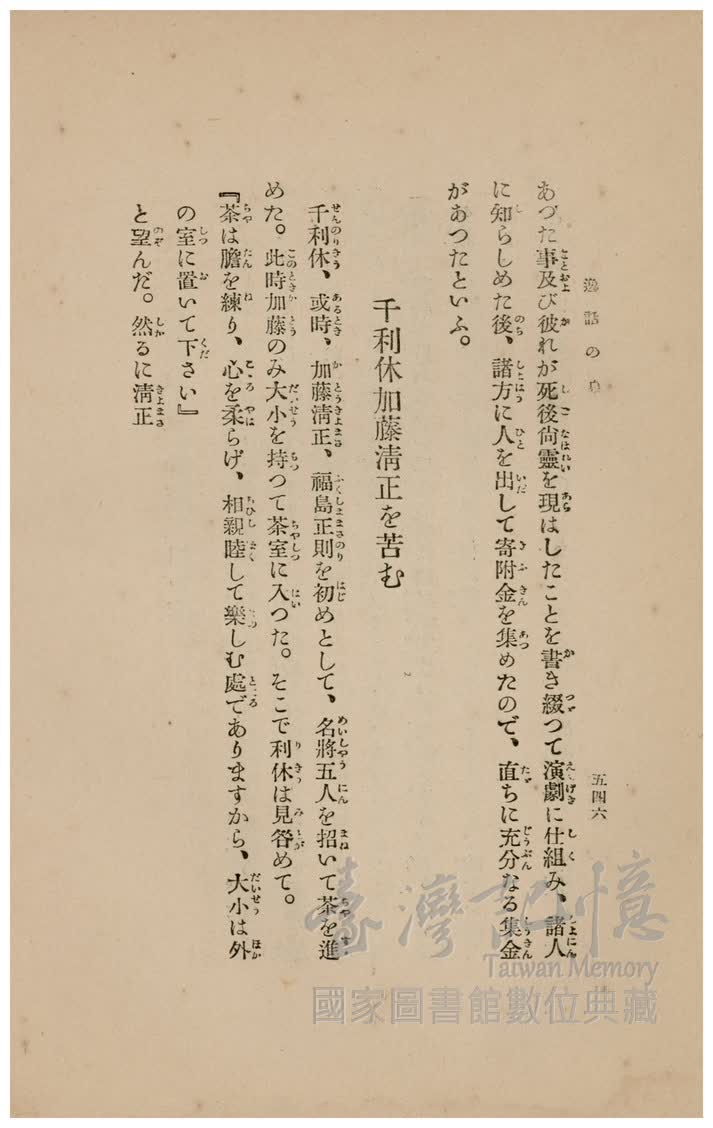 逸話の
五四六
あつた事及び彼れが死後尙靈を現はしたことを書き綴つて演劇に仕組み、諸人
に知らしめた後、諸方に人を出して寄附金を集めたので、直ちに充分なる集金
があつたといふ。
千利休加藤淸正を苦む
千利休、或時、加藤淸正、福島正則を初めとして、名將五人を招いて茶を進
めた。此時加藤のみ大小を持つて茶室に入つた。そこで利休は見咎めて。
『茶は膽を練り、心を柔らげ、相親睦して樂しむ處でありますから、大小は外
の室に置いて下さい』
と望んだ。然るに淸正
臺灣記憶
Taiwan Memory
國家圖書館數位典藏